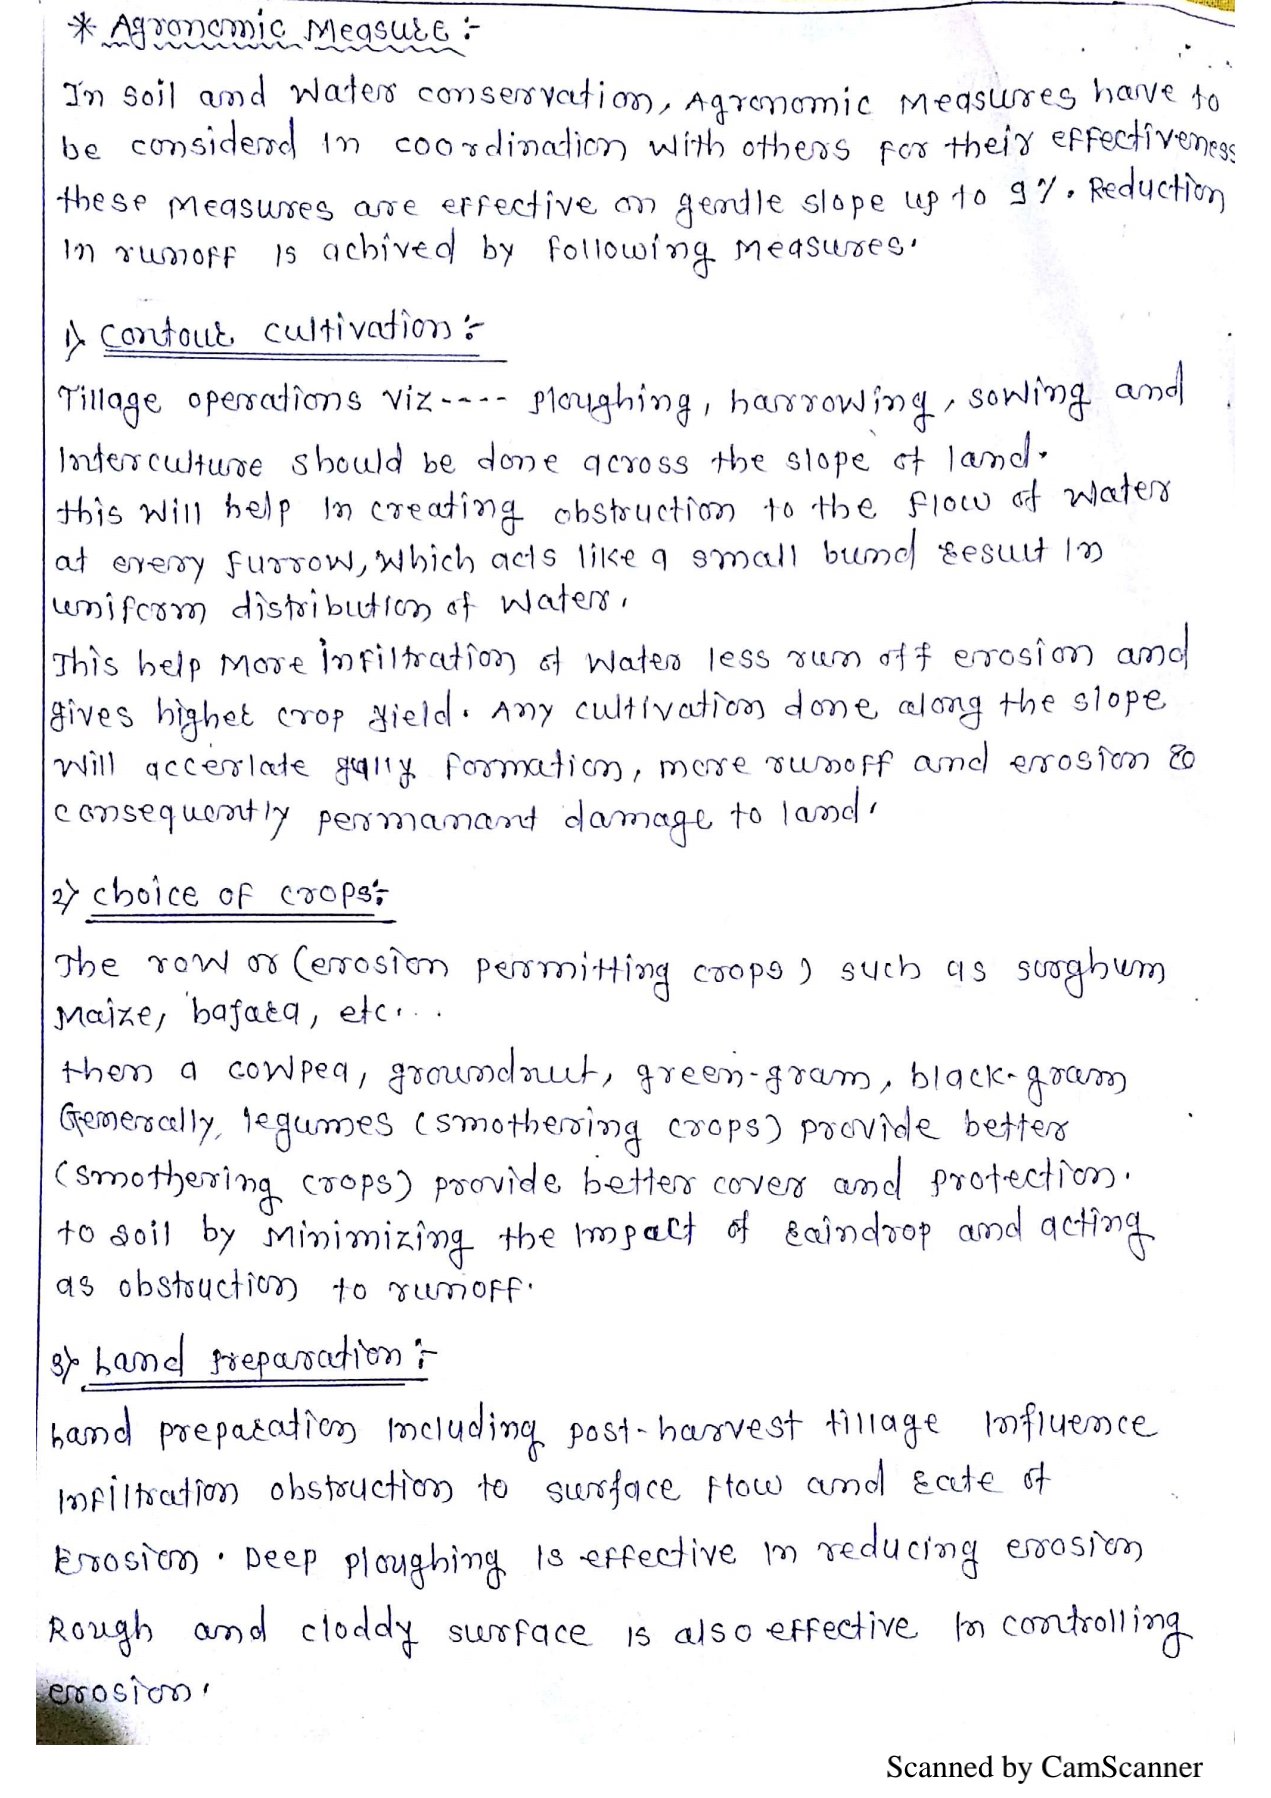 * Agronomic Measure :-
In soil and water conservation, Agronomic Measures have to
be considerd in coordination with others for their effectiveness
these measures are effective on gentle slope up to 9%. Reduction
in runoff is achived by following measures.
1) Contour cultivation :-
Tillage operations viz---- ploughing, harrowing, sowing and
Interculture should be done across the slope of land.
this will help in creating obstruction to the flow of water
at every furrow, which acts like a small bund result in
uniform distribution of water.
This help more infiltration of water less run off erosion and
gives higher crop yield. Any cultivation done along the slope
will accerlate gully formation, more runoff and erosion so
consequently permanant damage to land.
2) Choice of crops :-
The row or (erosion permitting crops) such as sorghum
Maize, bajara, etc...
then a cowpea, groundnut, green-gram, black-gram
Generally, legumes (smothering crops) provide better
(smothering crops) provide better cover and protection.
to soil by minimizing the impact of raindrop and acting
as obstruction to runoff.
3) Land preparation :-
Land preparation including post-harvest tillage influence
infiltration obstruction to surface flow and rate of
Erosion. Deep ploughing is effective in reducing erosion
Rough and cloddy surface is also effective in controlling
erosion.
Scanned by CamScanner